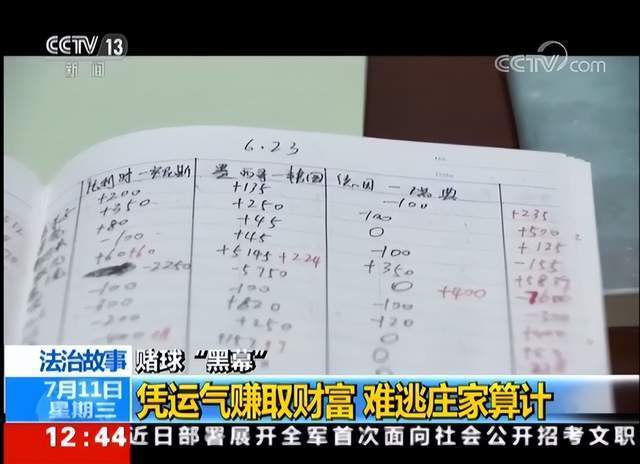 CCTV 13
新闻
CCTV.com
6.23
比利时一突尼斯 墨西哥一韩国 德国一瑞典
+200 +175 -100
+350 +250 -100 +235
+80 +45 0 +500
-100 +45 -100 +125
+60+60 +5145 +224 +350 -155
-2250 -5750 0
-100 -100 +400
-300 +820 -100
-200 +250
法治故事 赌球“黑幕”
7月11日
星期三
凭运气赚取财富 难逃庄家算计
12:44 近日部署展开全军首次面向社会公开招考文职